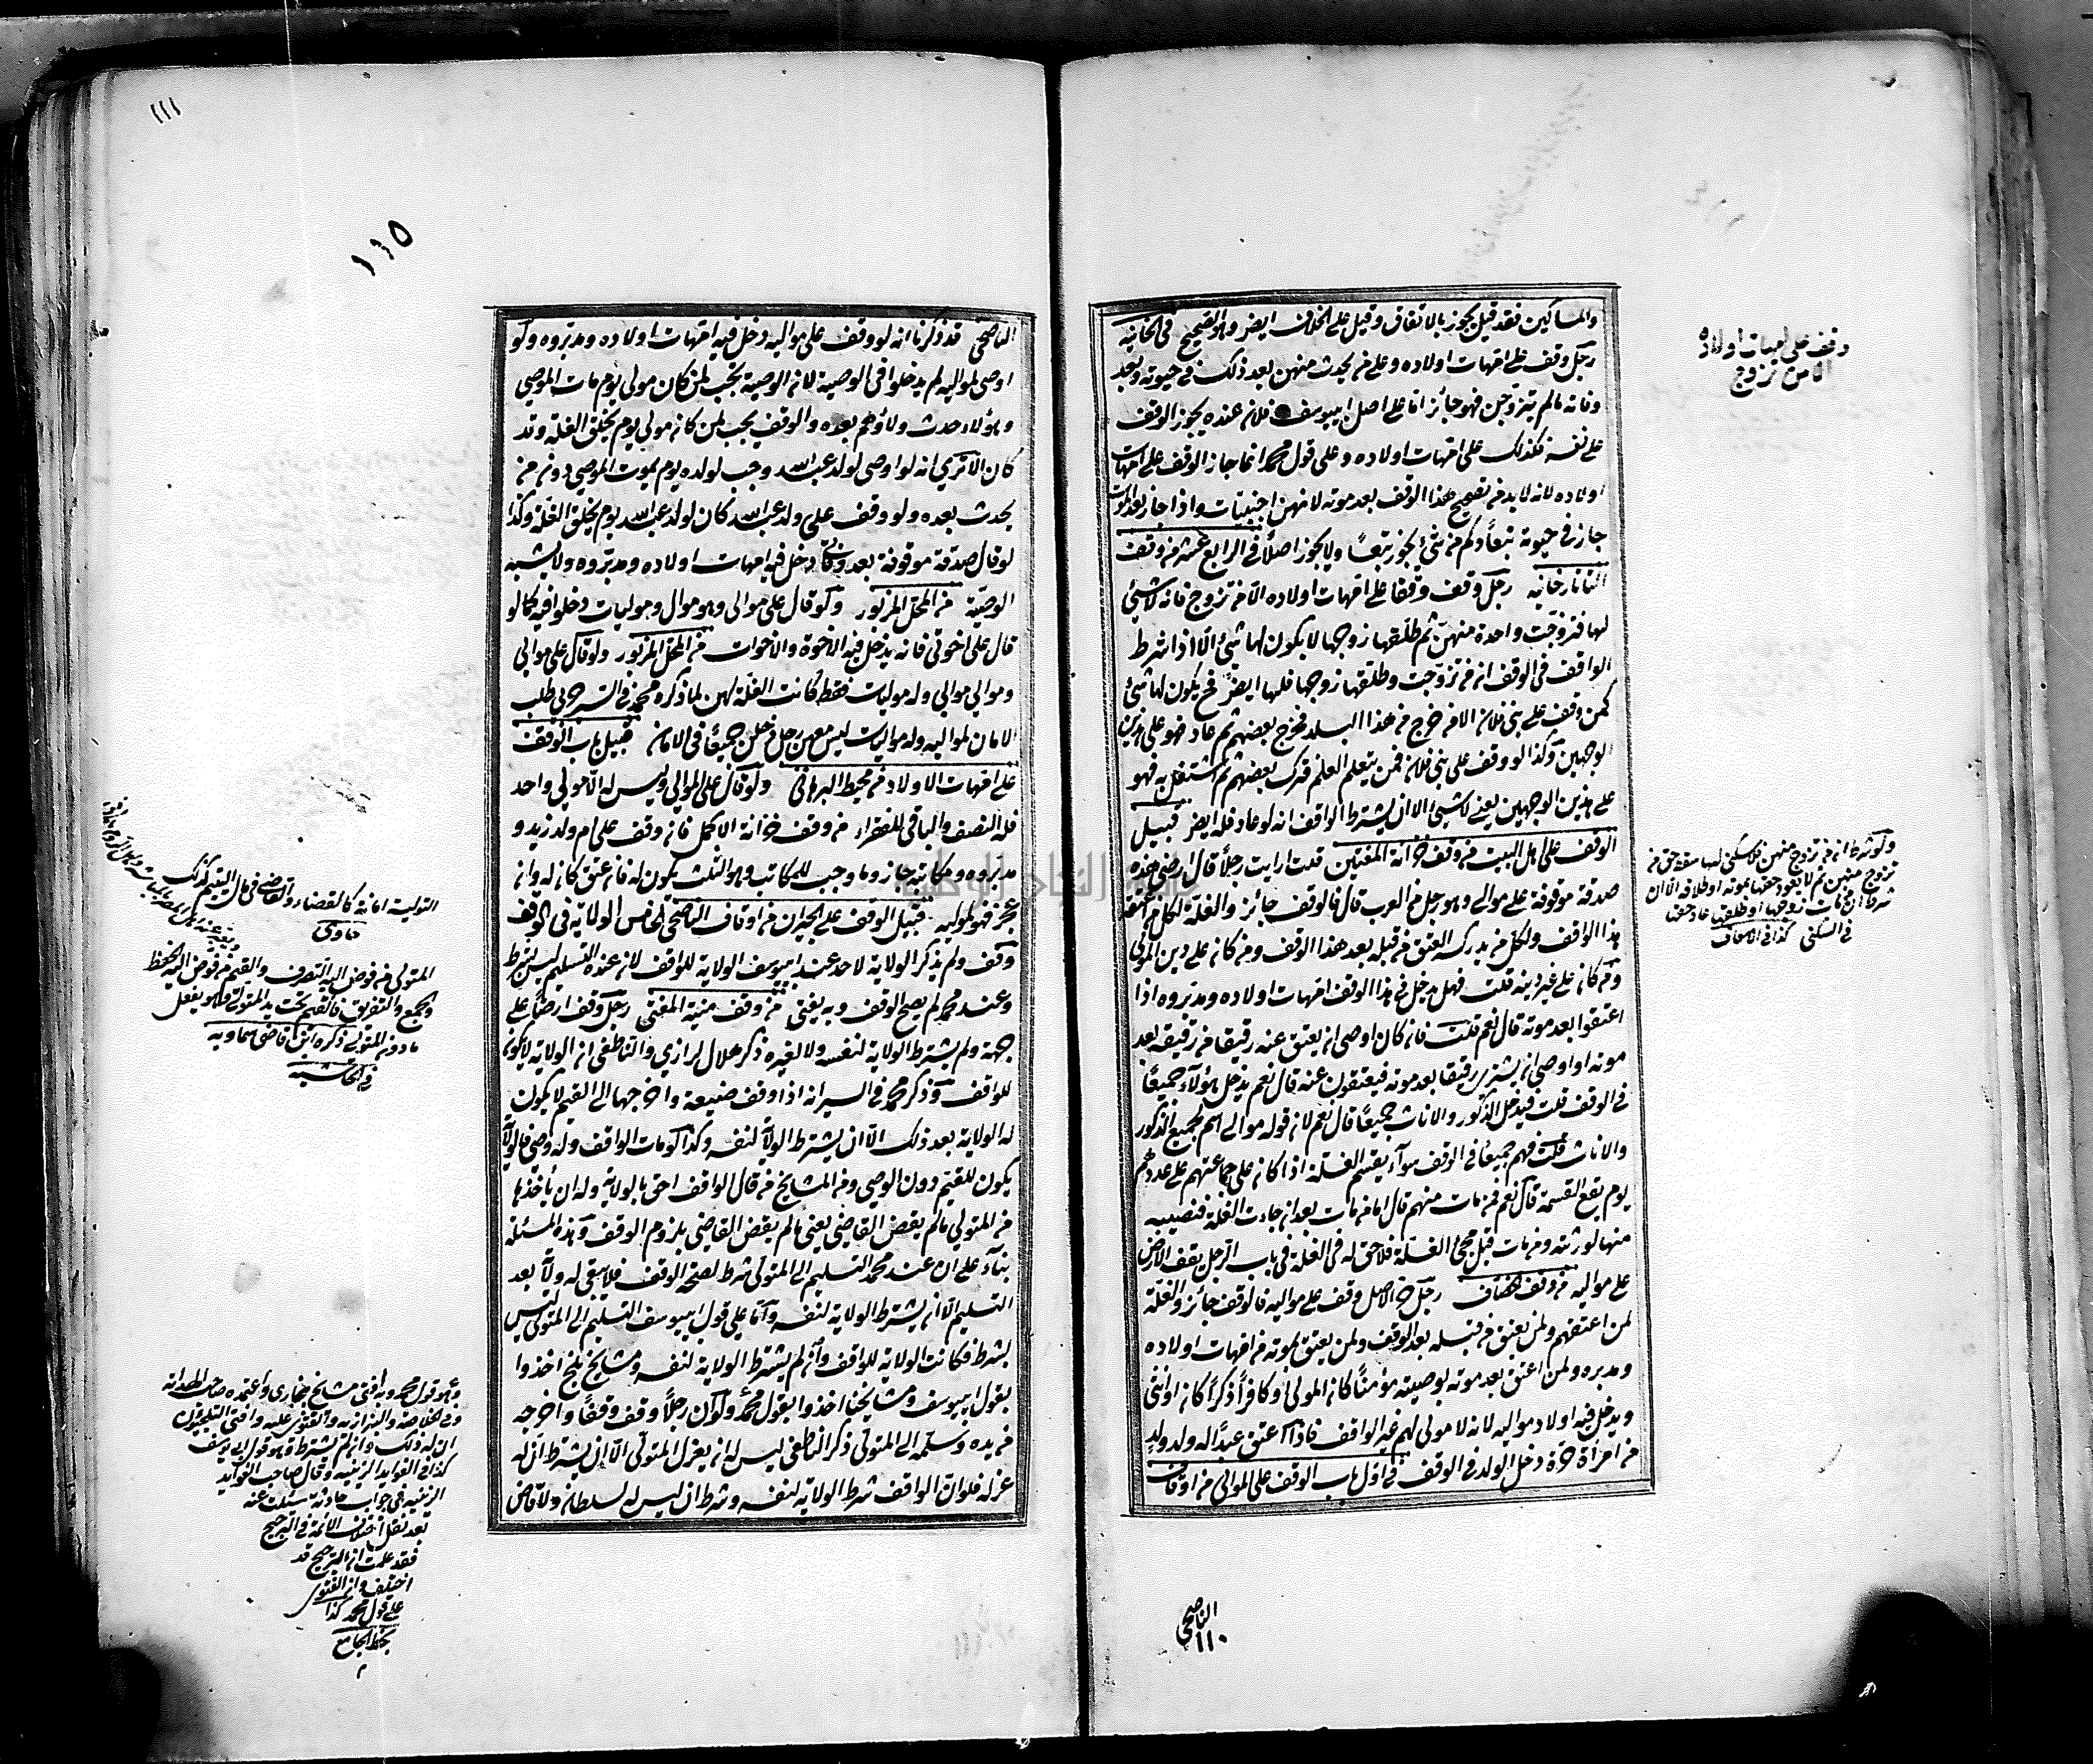 والمساكين فقد قيل يجوز بالاتفاق وقيل على الخلاف ايضر وهو الصحيح في الخانيه
رجل وقف على امهات اولاده وعلى من يحدث منهن بعد ذلك في حيوته وبعد
وفاته مالم تتزوجن فهو جائز اما على اصل ابيوسف فلانه عنده يجوز الوقف
على نفسه فكذلك على امهات اولاده وعلى قول محمد انما جاز الوقف على امهات
اولاده لانه لا بد من تصحيح هذا الوقف بعد موته لانهن اجنبيات واذا جاز بعد الموت
جاز في حيوته تبعاً وكم من شئ يجوز تبعاً ولا يجوز اصلاً في الرابع عشر من وقف
التاتارخانيه رجل وقف وقفا على امهات اولاده الا من تزوج فانه لا شئ
لها فتزوجت واحدة منهن ثم طلقها زوجها لا يكون لها شئ الا اذا شرط
الواقف في الوقف ان من تزوجت وطلقها زوجها فلها ايضر فح يكون لها شئ
كمن وقف على بني فلان الا من خرج من هذا البلد فخرج بعضهم ثم عاد فهو على هذين
الوجهين وكذا لو وقف على بني فلان فمن يتعلم العلم فترك بعضهم ثم اشتغل به فهو
على هذين الوجهين يعني لا شئ الا ان يشترط الواقف انه لو عاد فله ايضر قبيل
الوقف على اهل البيت من وقف خزانة المفتين قلت ارايت رجلاً قال ارضي هذه
صدقة موقوفة على موالي وهو رجل من العرب قال فالوقف جائز والغلة لكل من اعتقه
هذا الواقف ولكل من يدركه العتق من قبله بعد هذا الوقف ومن كان على دين المولى
ومن كان على غير دينه قلت فهل يدخل في هذا الوقف امهات اولاده ومدبروه اذا
اعتقوا بعد موته قال نعم قلت فان كان اوصى ان يعتق عنه رقيقا من رقيقه بعد
موته او اوصى ان يشترى رقيقا بعد موته فيعتقون عنه قال نعم يدخل هؤلاء جميعاً
في الوقف قلت فيدخل الذكور والاناث جميعاً قال نعم لان قوله موالي اسم لجميع الذكور
والاناث قلت فهم جميعاً في الوقف سواء يقسم الغلة اذا كان على جماعتهم على عددهم
يوم يقع القسمة قال نعم فمن مات منهم قال اما من مات بعد ان جاءت الغلة فنصيبه
منها لورثته ومن مات قبل مجئ الغلة فلا حق له في الغلة في باب الرجل يقف الارض
على مواليه من وقف خصاف رجل حر الاصل وقف على مواليه فالوقف جائز والغلة
لمن اعتقهم ولمن يعتق من قبله بعد الوقف ولمن يعتق بموته من امهات اولاده
ومدبره ولمن اعتق بعد موته بوصيته مؤمناً كان المولى او كافراً ذكراً كان او انثى
ويدخل فيه اولاد مواليه لانه لا مولى لهم غير الواقف فاذا اعتق عبداً له ولد ولد
من امرأة حرة دخل الولد في الوقف في اول باب الوقف على الموالي من اوقاف
الناصحي
١١٠
وقف على امهات اولاده
الا من تزوج
ولو شرط ان من تزوج منهن فلا سكنى لها سقط حق من
تزوج منهن ثم لا يعود حقها بموته او طلاقه الا ان
شرط ان من مات زوجها او طلقها عاد حقها
في السكنى كذا في الاسعاف
١١١
١١٥
الناصحي قد ذكرنا انه لو وقف على مواليه دخل فيه امهات اولاده ومدبروه ولو
اوصى لمواليه لم يدخلوا في الوصية لان الوصية يجب لمن كان مولى يوم مات الموصي
وهؤلاء حدث ولاؤهم بعده والوقف يجب لمن كان مولى يوم يخلق الغلة وقد
كان الا ترى انه لو اوصى لولد عبد الله وجب لولده يوم يموت الموصي دون من
يحدث بعده ولو وقف على ولد عبد الله كان لولد عبد الله يوم يخلق الغلة وكذا
لو قال صدقة موقوفة بعد وفاتي دخل فيه امهات اولاده ومدبروه ولا يشبه
الوصية من المحل المزبور ولو قال على موالى وهو موال وموليات دخلوا فيه كما لو
قال على اخوتي فانه يدخل فيه الاخوة والاخوات من المحل المزبور ولو قال على موالي
وموالي موالي وله موليات فقط كانت الغلة لهن لما ذكره محمد في السير حربي طلب
الامان لمواليه وله مواليات ليس معهن رجل دخلن جميعاً في الامان قبيل باب الوقف
على امهات الاولاد من محيط البرهاني ولو قال على الموالي وليس له الا مولى واحد
فله النصف والباقي للفقراء من وقف خزانة الاكمل فان وقف على ام ولد زيد و
مدبروه ومكاتبه جاز وما وجب للمكاتب وهو الثلث يكون له فان عتق كان له وان
عجز فهو لمولاه قبيل الوقف على الجيران من اوقاف الناصحي الخامس الولاية في الوقف
وقف ولم يذكر الولاية لاحد عند ابيوسف الولاية للواقف لان عنده التسليم ليس بشرط
وعند محمد لم يصح الوقف وبه يفتى من وقف منية المفتي رجل وقف ارضاً على
جهة ولم يشترط الولاية لنفسه ولا لغيره ذكر هلال الرازي والناطفي ان الولاية يكون
للواقف وذكر محمد في السير انه اذا وقف ضيعة واخرجها الى القيم لا يكون
له الولاية بعد ذلك الا ان يشترط الولاية لنفسه وكذا لو مات الواقف وله وصي فالولاية
يكون للقيم دون الوصي ومن المشايخ من قال الواقف احق بالولاية وله ان يأخذها
من المتولي مالم يقض القاضي يعني مالم يقض القاضي بلزوم الوقف وهذه المسئلة
بناء على ان عند محمد التسليم الى المتولى شرط لصحة الوقف فلا يبقى له ولاية بعد
التسليم الا ان يشترط الولاية لنفسه واما على قول ابيوسف التسليم الى المتولى ليس
بشرط فكانت الولاية للواقف وان لم يشترط الولاية لنفسه ومشايخ بلخ اخذوا
بقول ابيوسف ومشايخنا اخذوا بقول محمد ولو ان رجلاً وقف وقفاً واخرجه
من يده وسلمه الى المتولى ذكر الناطفي ليس له ان يعزل المتولى الا ان يشترط ان له
عزله فلو ان الواقف شرط الولاية لنفسه وشرط ان ليس لسلطان ولا قاض
التولية امانة كالقضاء والقاضي في مال اليتيم كذلك
حاوى
المتولى من فوض اليه التصرف والقيم من فوض اليه الحفظ
والجمع والتفريق فالقيم تحت يد المتولى وهو يفعل
ماذون المتولى ذكره ابن قاضى سماوية
في الحاشية
وهو قول محمد وبه افتى مشايخ بخارى واعتمده صاحب الهداية
وفي الخلاصة والبزازية والفتوى عليه وافتى البلخيون
ان له ذلك وان لم يشترط وهو قول ابى يوسف
كذا في الفوايد الزينيه وقال صاحب الفوايد
الزينيه في جواب حادثة سئلت عنه
بعد نقل اختلاف الائمة في الترجيح
فقد علمت ان الترجيح قد
اختلف وان الفتوى
على قول محمد كذا
بخط الجامع